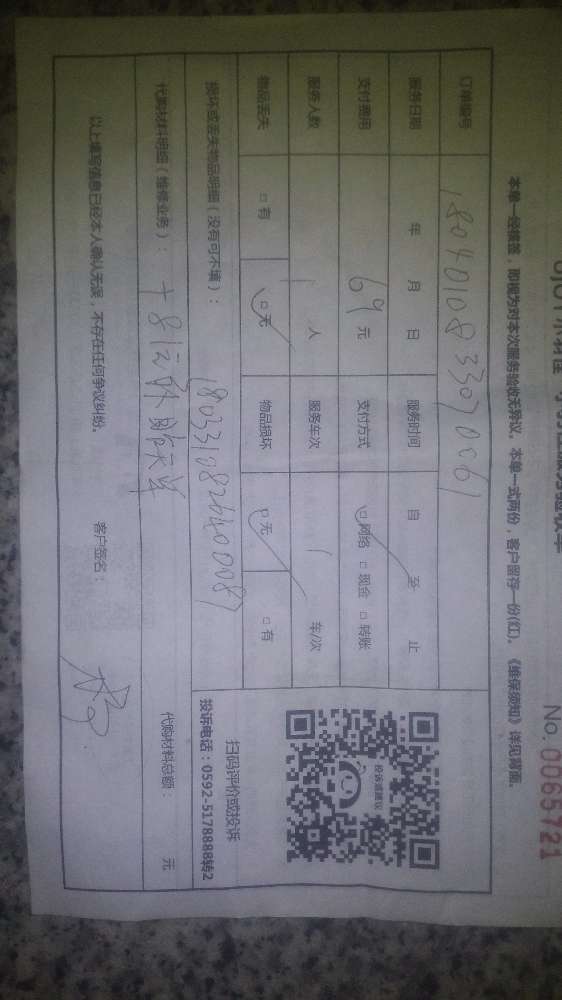 No. 0065721
本单一经横签，即视为对本次服务验收无异议。本单一式两份，客户留存一份(红)。《维保须知》详见背面。
订单编号 1804010833070061
服务日期 年 月 日 服务时间 自 至 止
支付费用 69 元 支付方式 □网络 □现金 □转账
服务人数 1 人 服务车次 1 车/次
物品丢失 □有 □无 物品损坏 □无 □有
损坏或丢失物品明细（没有可不填）：
代购材料明细（维修业务）： 代购材料总额： 元
以上填写信息已经本人确认无误，不存在任何争议纠纷。 客户签名：
投诉或建议
扫码评价或投诉
投诉电话：0592-5178888转2